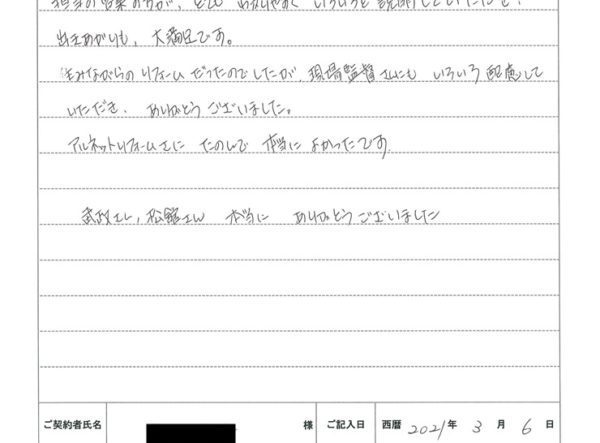 担当の営業の方が、とても わかりやすく いろいろと 説明していただき、
出来あがりも、大満足です。
住みながらの リフォームだったのでしたが、現場監督さんにも いろいろ配慮して
いただき、ありがとうございました。
アルネットリフォームさんに たのんで 本当に よかったです
さん、松舘さん 本当に ありがとうございました
ご契約者氏名 様 ご記入日 西暦 2021年 3月 6日